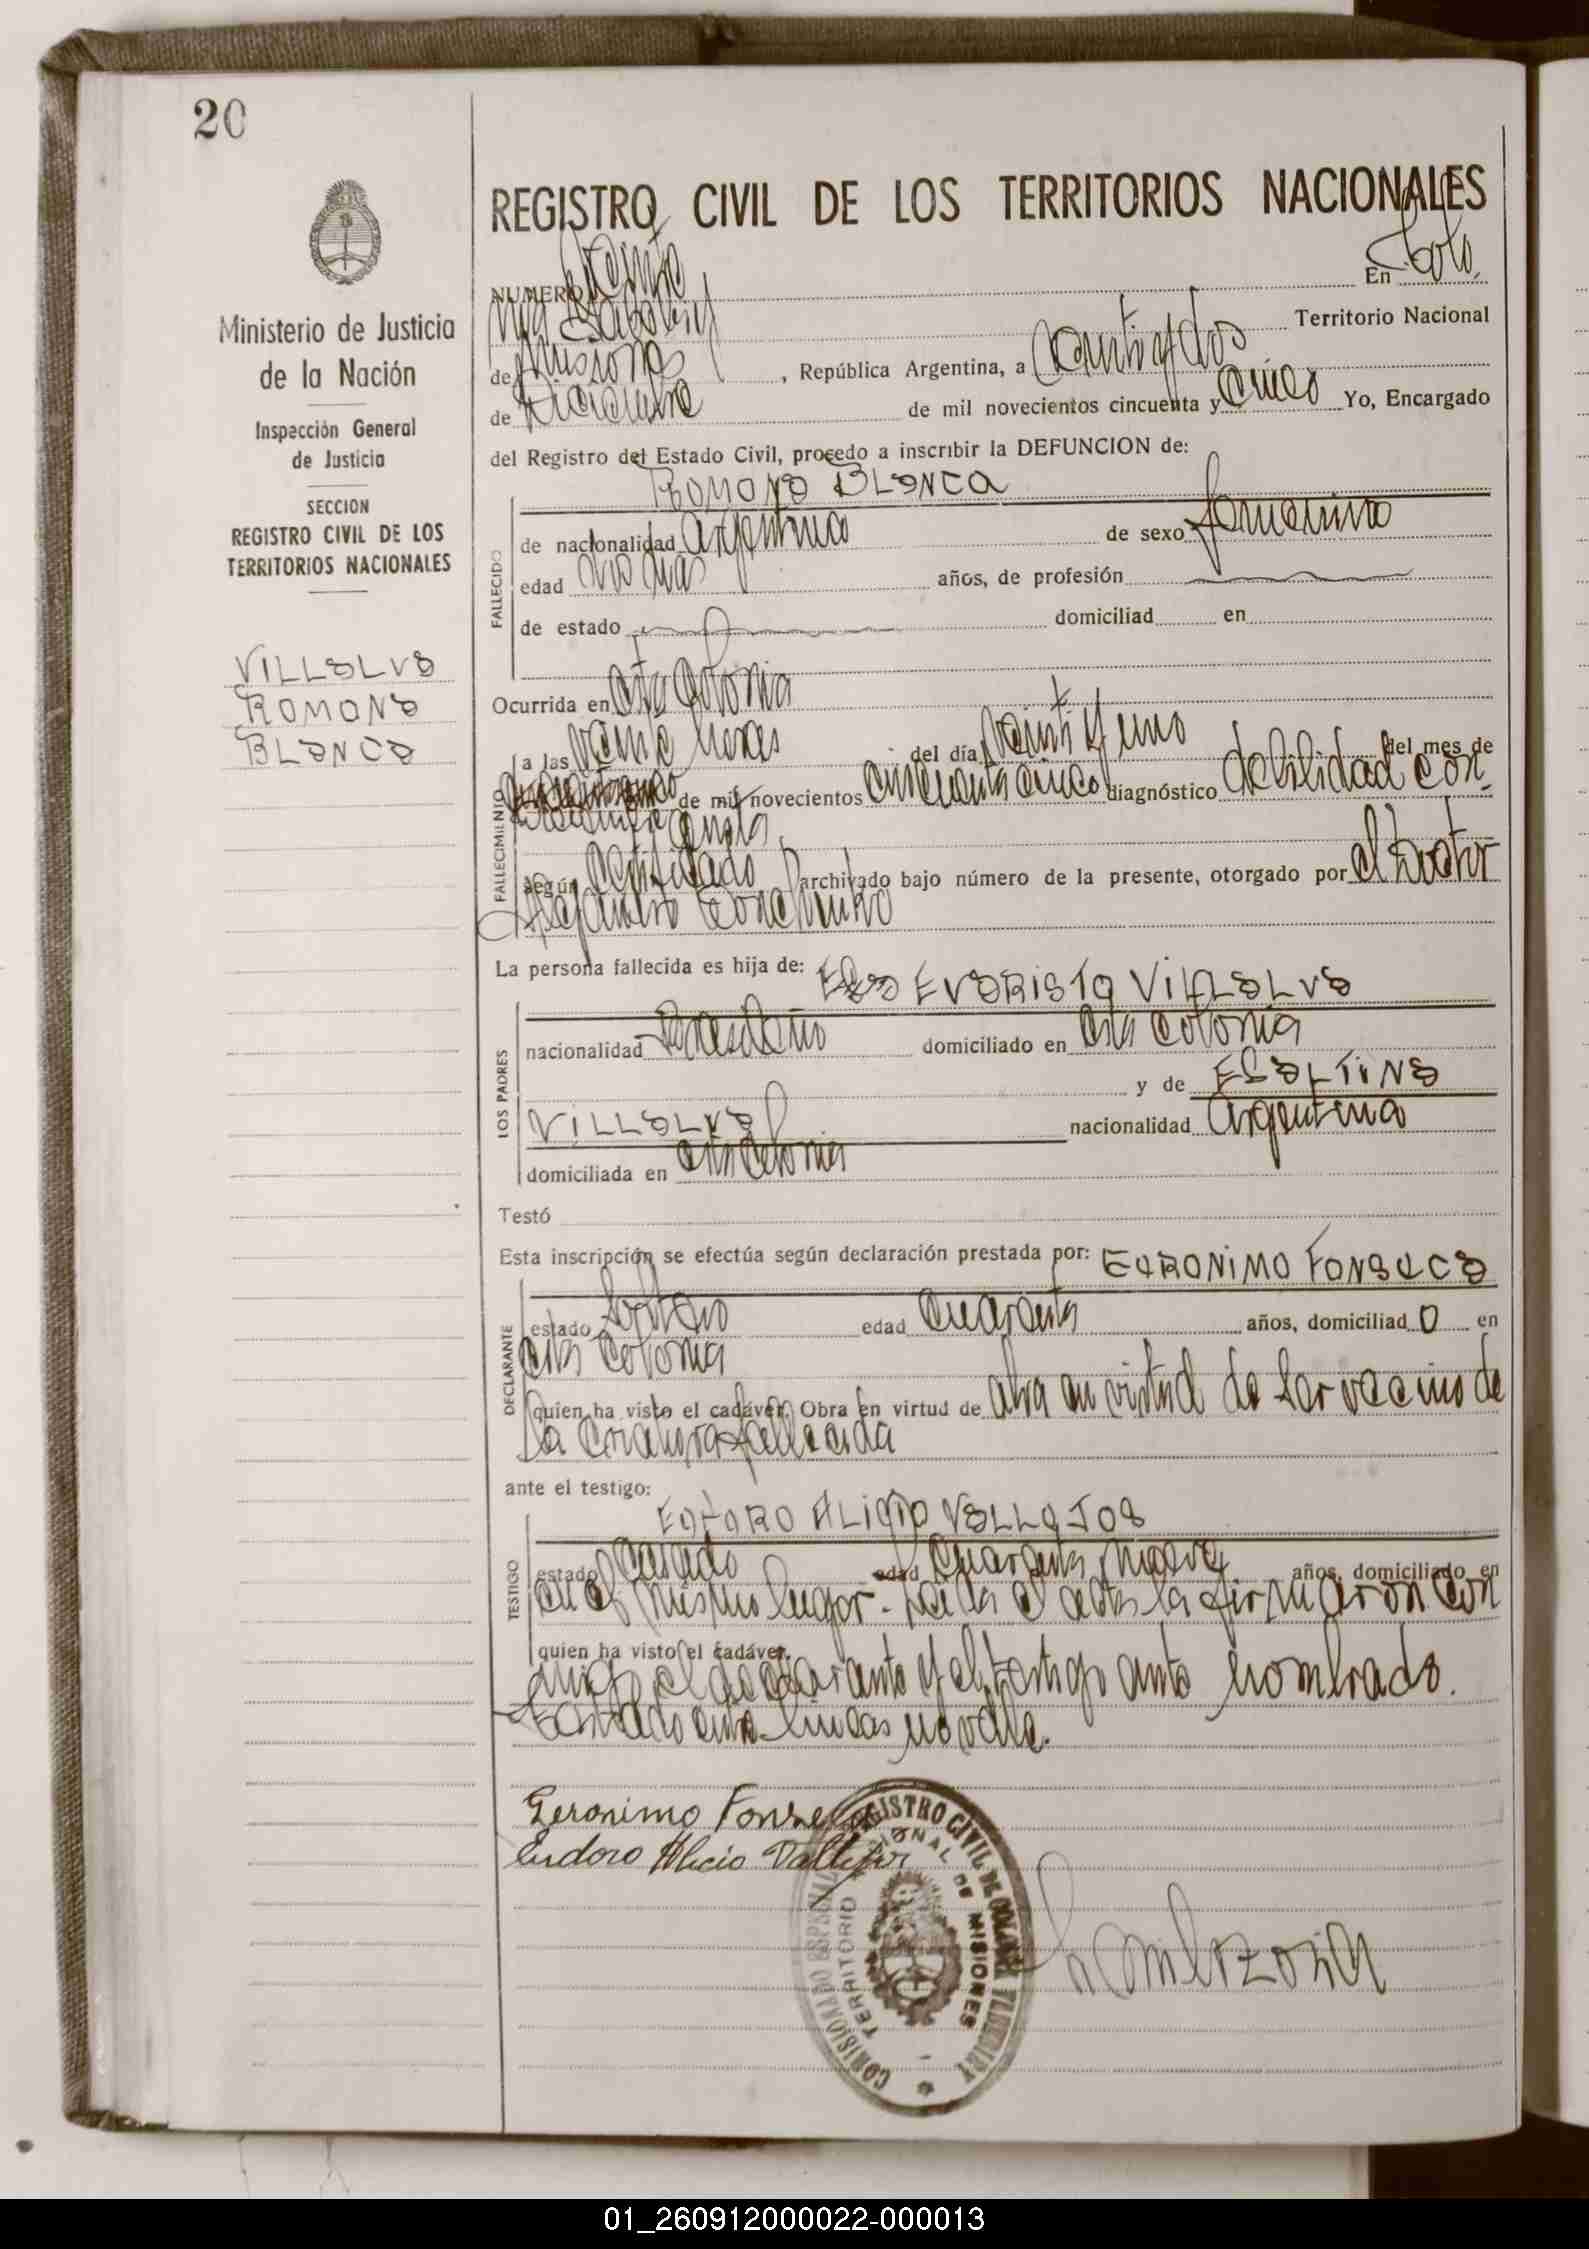 20
REGISTRO CIVIL DE LOS TERRITORIOS NACIONALES
Ministerio de Justicia
de la Nación
Inspección General
de Justicia
SECCION
REGISTRO CIVIL DE LOS
TERRITORIOS NACIONALES
VILLALVA
ROMONA
BLANCA
NUMERO veinte En Colo
nia Territorio Nacional
de Misiones, República Argentina, a veinti y dos
de Diciembre de mil novecientos cincuenta y cinco Yo, Encargado
del Registro del Estado Civil, procedo a inscribir la DEFUNCION de:
ROMONA BLANCA
FALLECIDO
de nacionalidad argentina de sexo femenino
edad dias años, de profesión
de estado domiciliad en
Ocurrida en esta Colonia
FALLECIMIENTO
a las veinte horas del día veinti y uno del mes de
Diciembre de mil novecientos cincuenta cinco diagnóstico debilidad con-
según certificado archivado bajo número de la presente, otorgado por el Doctor
Alejandro
La persona fallecida es hija de: EVARISTO VILLALVA
LOS PADRES
nacionalidad domiciliado en esta Colonia
y de
VILLALVA nacionalidad Argentina
domiciliada en esta Colonia
Testó
Esta inscripción se efectúa según declaración prestada por: GERONIMO FONSECA
DECLARANTE
estado Soltero edad cuarenta años, domiciliad o en
esta Colonia
quien ha visto el cadáver. Obra en virtud de obra en virtud de ser vecino de
la fallecida
ante el testigo:
EUDORO ALICIO VALLEJOS
TESTIGO
estado casado edad cuarenta nueve años, domiciliado en
en el mismo lugar. Leida el acta la firmaron con
quien ha visto el cadáver.
migo el declarante y el testigo ante nombrado.
Testado entre lineas no vale.
Geronimo Fonseca
Eudoro Alicio Vallejos
REGISTRO CIVIL DE COLONIA
TERRITORIO NACIONAL DE MISIONES
01_260912000022-000013